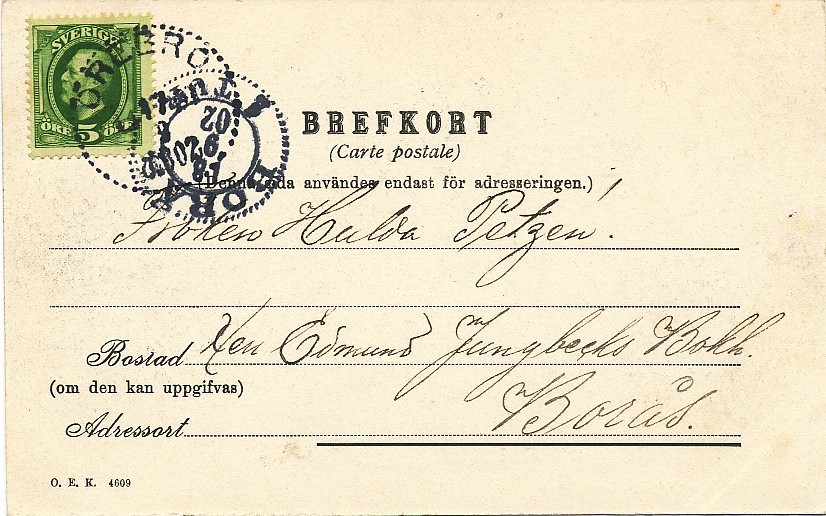 SVERIGE
ÖRE 5 ÖRE
ÖREBRO
BREFKORT
(Carte postale)
(Denna sida användes endast för adresseringen.)
Fröken Hulda Petzén!
Bostad Herr Edmund Ljungbecks Bokh.
(om den kan uppgifvas)
Borås.
Adressort
O. E. K. 4609